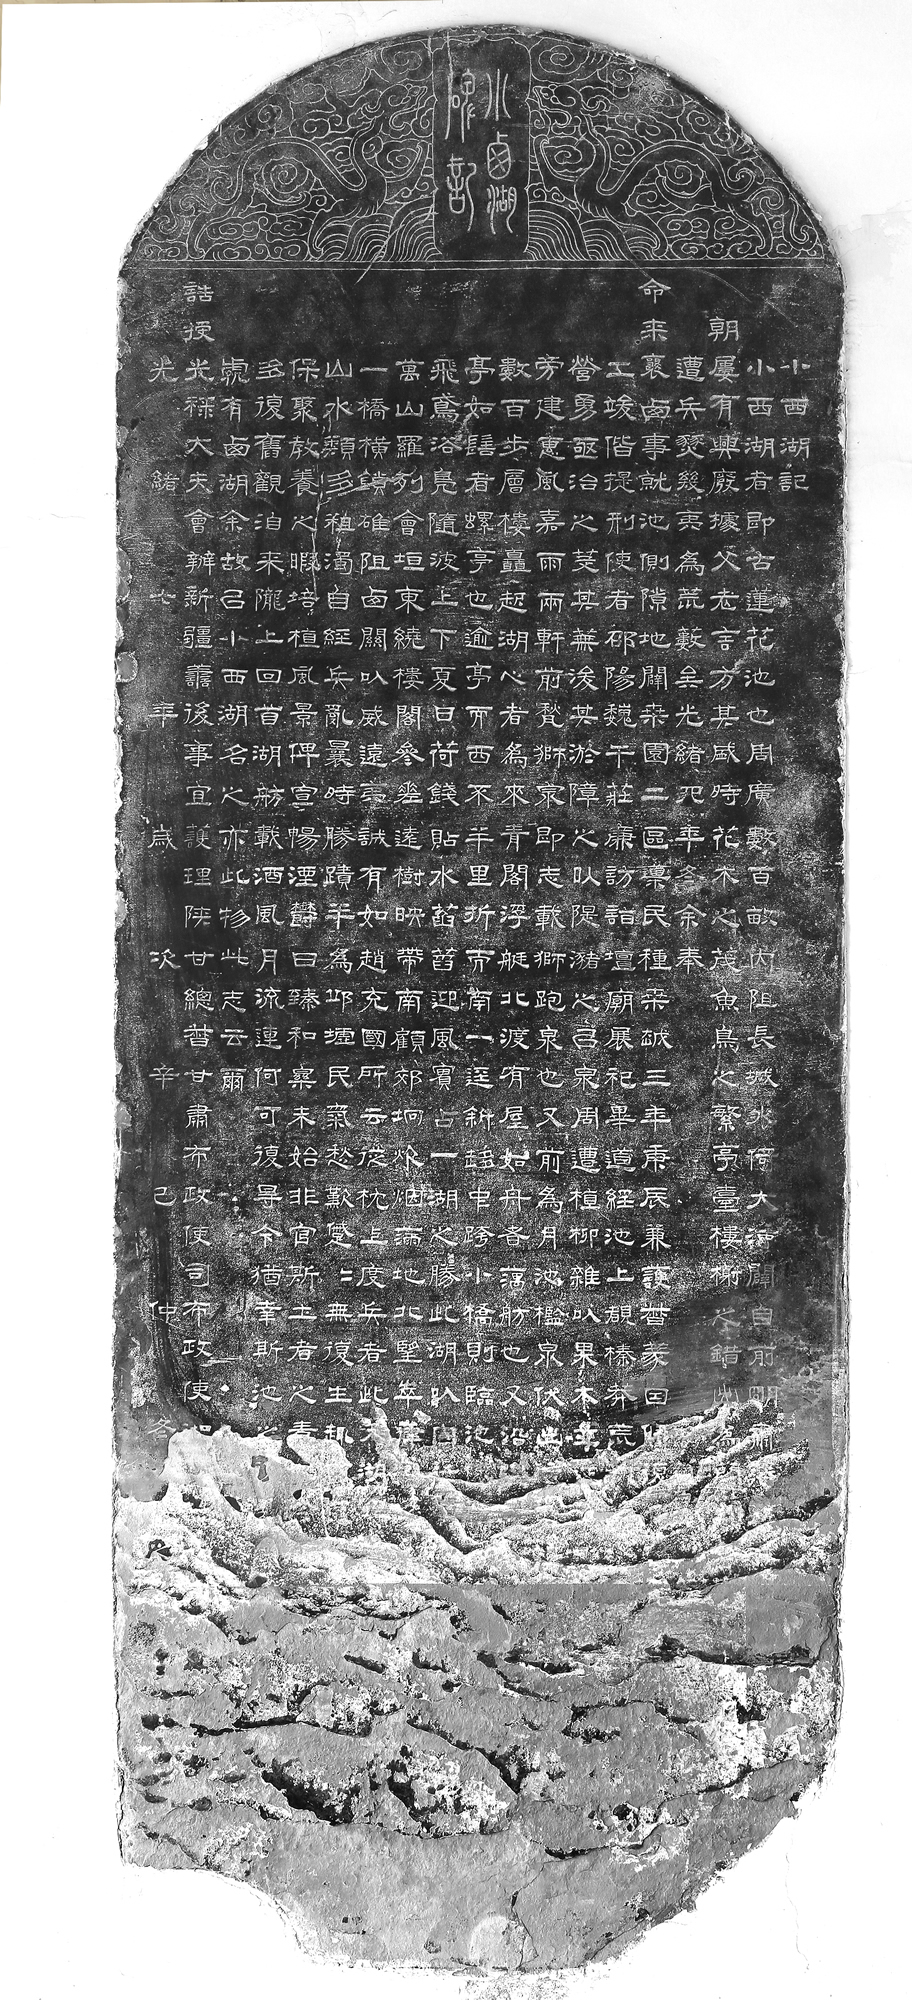 小西湖
碑記
小西湖記
小西湖者即古蓮花池也周廣數百畝內阻長城外倚大河闢自前明肅
朝屢有興廢據父老言方其盛時花木之茂魚鳥之繁亭臺樓榭之錯出為
遭兵燹幾夷為荒藪矣光緒元年冬余奉
命來襄西事就池側隙地闢桒園二區藁民種桒越三年庚辰兼護督篆因
工竣偕提刑使者邵陽魏午莊廉訪詣壇廟展祀畢道經池上覩榛莽荒
營勇亟治之芟其蕪浚其淤障之以隄瀦之㠯泉周遭植柳雜以果木
旁建惠風嘉雨兩軒前甃獅泉即志載獅跑泉也又前為月池檻泉伏出
數百步層樓矗起湖心者為來青閣浮艇北渡有屋如舟者蕩舫也又沿
亭如髻者螺亭也逾亭而西不半里折而南一逕斜趍中跨小橋則臨池
飛鳶浴鳧隨波上下夏日荷錢貼水菡萏迎風實占一湖之勝此湖以內
萬山羅列會垣東繞樓閣參差遠樹映帶南顧郊坰炊烟滿地北望
一橋橫鎖雄阻西關以威遠夷誠有如趙充國所云從枕上度兵者此夫湖
山水類多租濁自經兵亂曩時勝蹟半為邱墟民氣愁歎蹙蹙無復生機
保聚教養之暇培植風景俾宣暢湮鬱曰臻和樂未始非官斯土者之責
多復舊觀洎来隴上回首湖舫載酒風月流連何可復尋今猶幸斯池之
處有西湖余故㠯小西湖名之亦此物此志云爾
誥授光祿大夫會辦新疆善後事宜護理陝甘總督甘肅布政使司布政使
光緒七年歲次辛巳仲冬